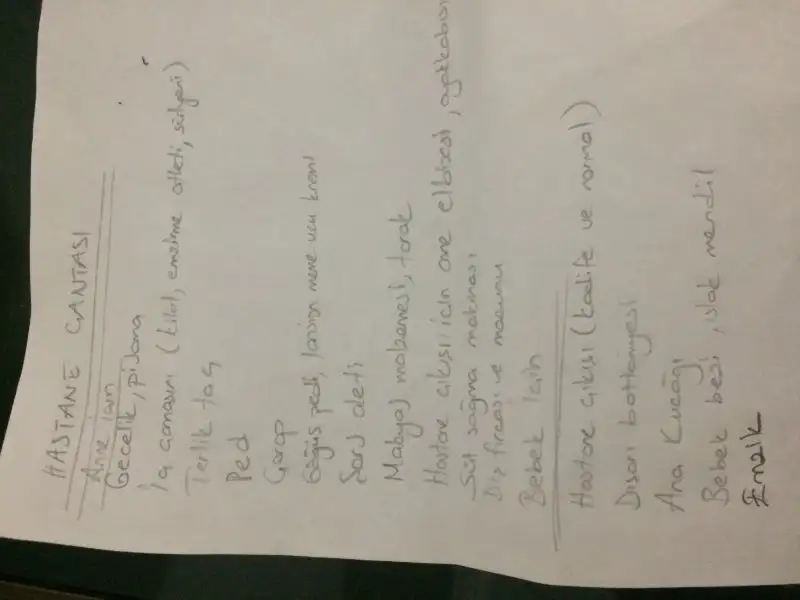 HASTANE ÇANTASI
Anne için
Gecelik, pijama
İç çamaşırı (kilot, emzirme atleti, sütyeni)
Terlik taç
Ped
Çorap
Göğüs pedi, lansinoh meme ucu kremi
Şarj aleti
Makyaj malzemesi, tarak
Hastane çıkışı için anne elbisesi, ayakkabısı
Süt sağma makinası
Diş fırçası ve macunu
Bebek için
Hastane çıkışı (kadife ve normal)
Dışarı battaniyesi
Ana Kucağı
Bebek bezi, ıslak mendil
Emzik